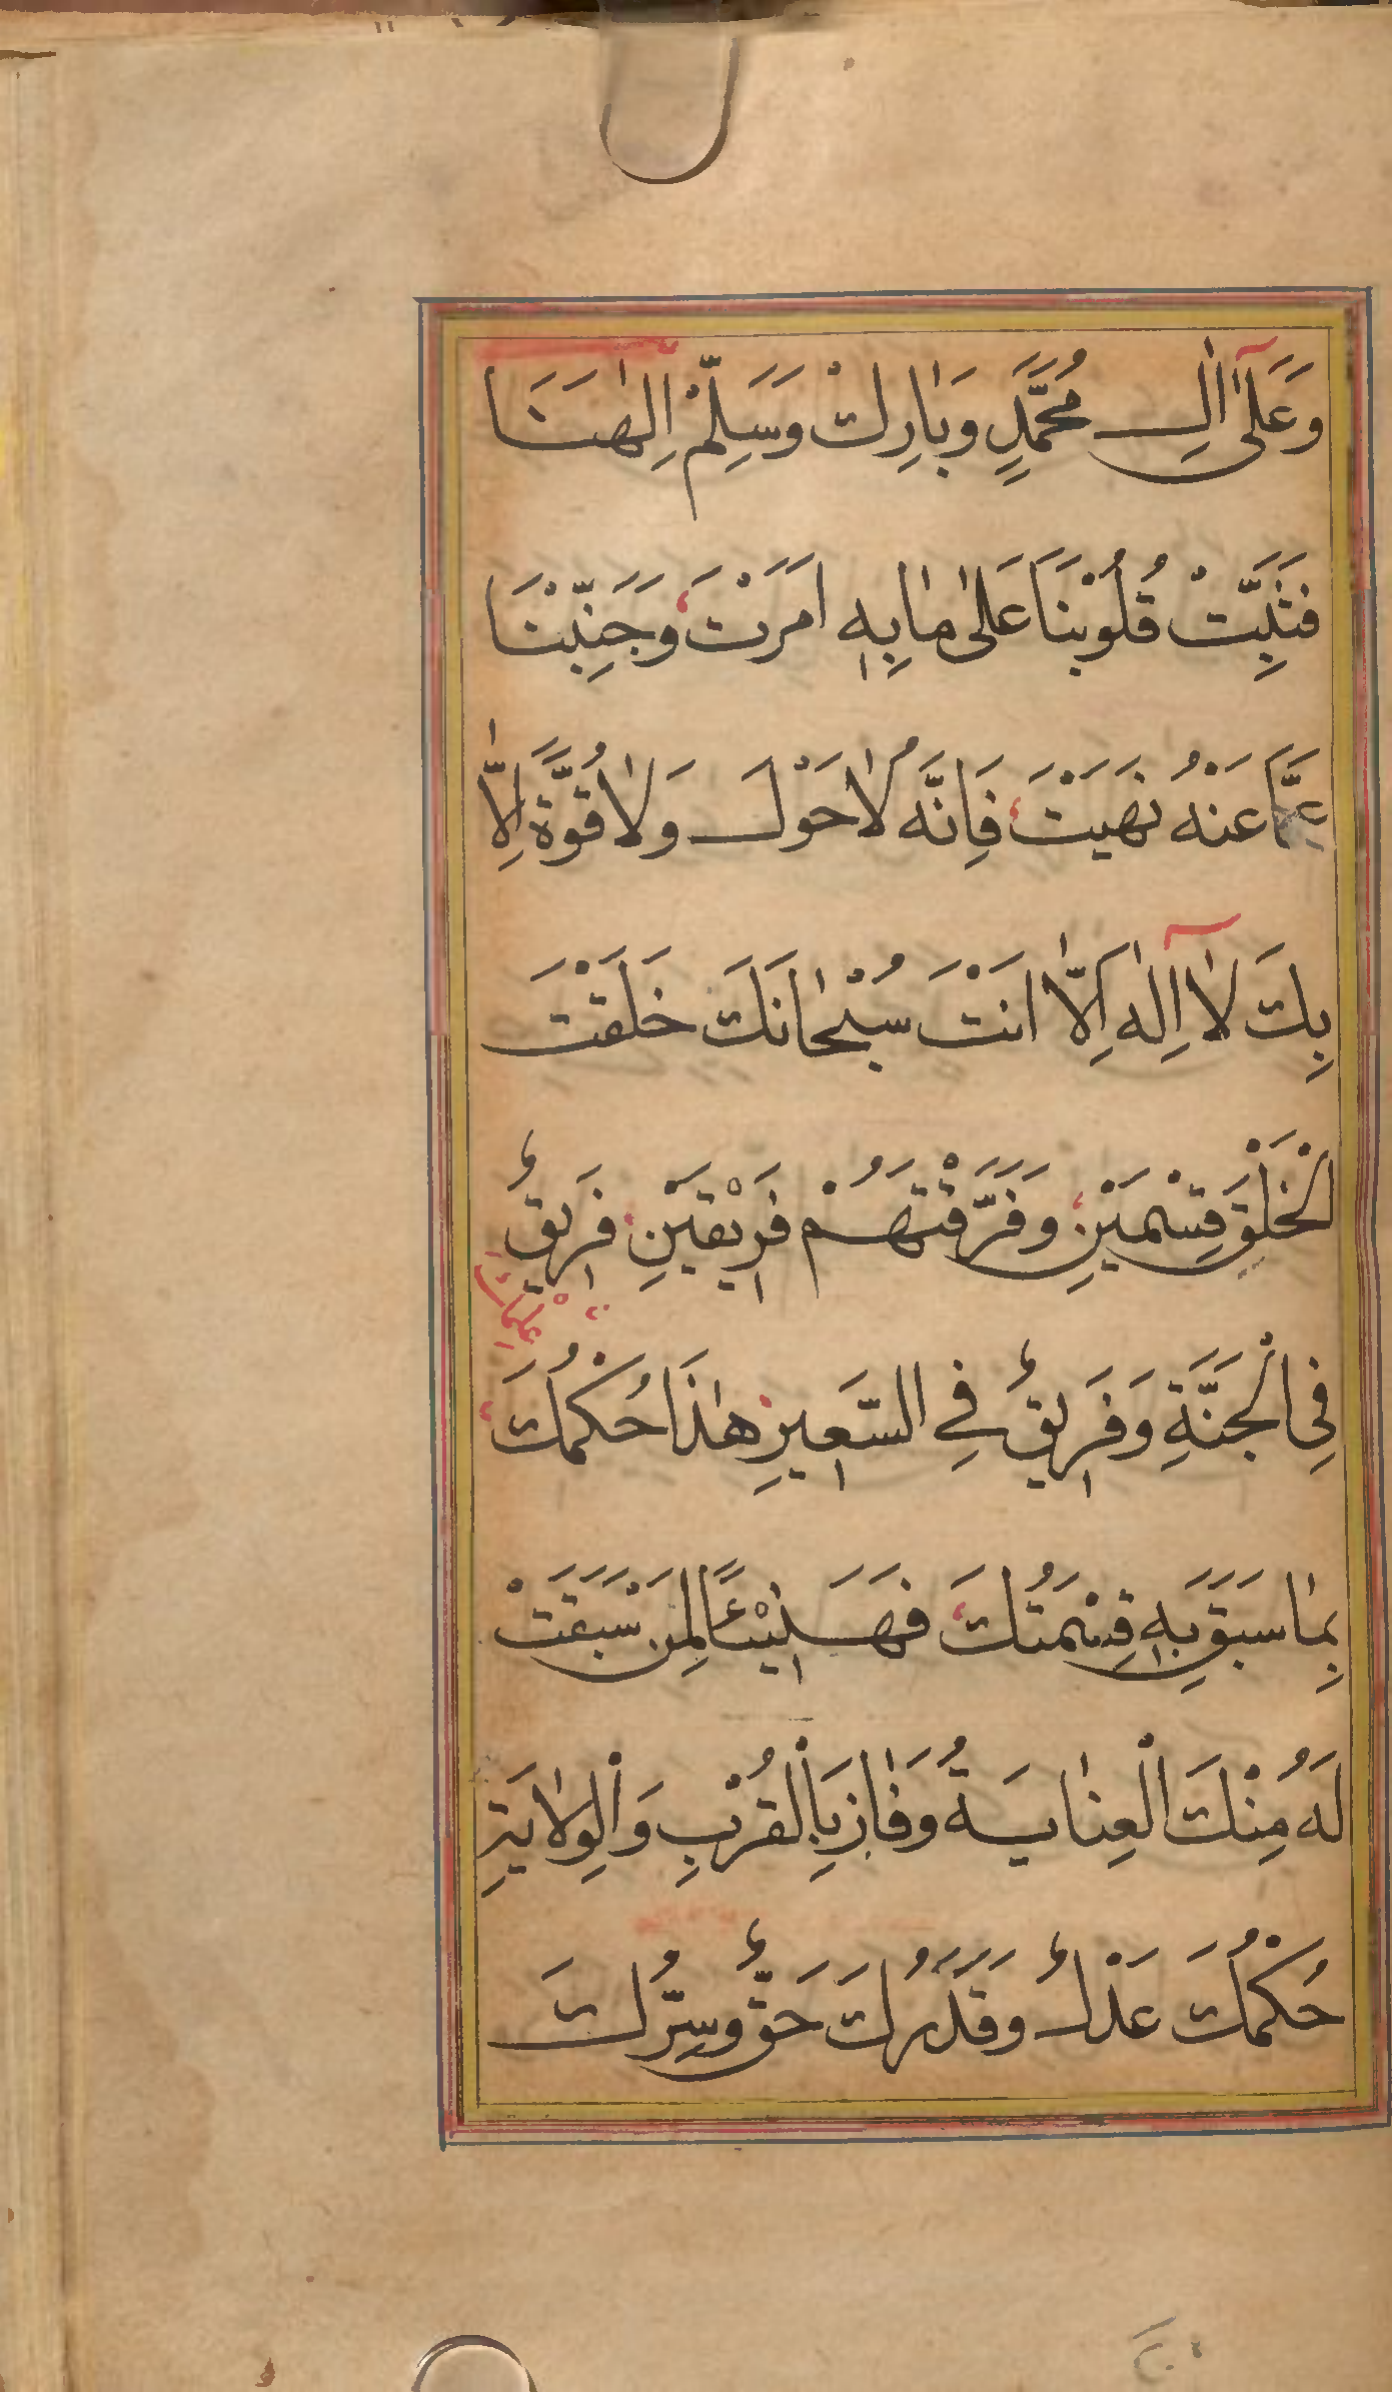 وَعَلٰٓى اٰلِ مُحَمَّدٍ وَبٰارِكْ وَسَلِّمْ اِلٰهَنَا
فَثَبِّتْ قُلُوْبَنَا عَلٰى مٰا بِهٖ اَمَرْتَ وَجَنِّبْنَا
عَمَّا عَنْهُ نَهَيْتَ فَاِنَّهُ لٰا حَوْلَ وَلٰا قُوَّةً اِلّٰا
بِكَ لٰٓا اِلٰهَ اِلّٰا اَنْتَ سُبْحٰانَكَ خَلَقْتَ
الْخَلْقَ قِسْمَيْنِ وَفَرَّقْتَهُمْ فَرِيْقَيْنِ فَرِيقٌ
فِى الْجَنَّةِ وَفَرِيقٌ فِي السَّعِيرِ هٰذَا حُكْمُكَ
بِمٰا سَبَقَ بِهٖ قِسْمَتُكَ فَهَنِيْئًا لِمَنْ سَبَقَتْ
لَهُ مِنْكَ الْعِنٰايَةُ وَفٰازَ بِالْقُرْبِ وَالْوِلٰايَةِ
حُكْمُكَ عَدْلٌ وَقَدَرُكَ حَقٌّ وَسِرُّكَ